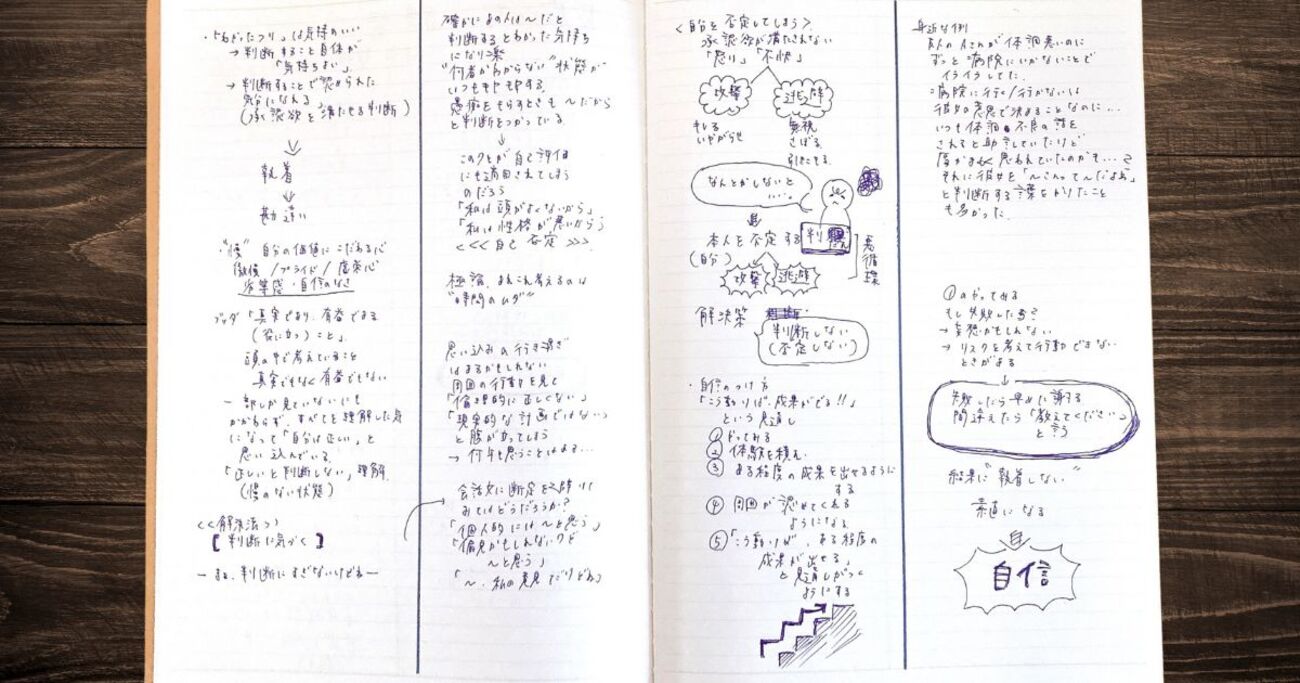 ・「わかったつり」は気持のいい
→ 判断すること自体が
「気持ちよい」
→ 判断することで認められた
気分になれる
(承認欲を満たせる判断)
執着
勘違い
・"慢" 自分の価値にこだわる心
傲慢/プライド/虚栄心
劣等感・自信のなさ
ブッダ「真実であり、有益である
(役に立つ)こと」
頭の中で考えていること
真実でもなく有益でもない
一部しか見ていないにも
かかわらず、すべてを理解した気
になって「自分は正しい」と
思い込んでいる。
「正しいと判断しない」理解
(慢のない状態)
<<解決法>>
【判断に気づく】
ー まあ、判断にすぎないけどねー
確かにあの人は〜だと
判断するとわかった気持ち
になり楽
"何者かわからない"状態が
いつもモヤモヤする。
愚痴をもらすときも〜だから
と判断をつかっている
↓
このクセが自己評価
にも適用されてしまう
のだろう
「私は頭がよくないから」
「私は性格が悪いから」
<<<自己否定>>>
極論、あれこれ考えるのは
"時間のムダ"
思い込みの行き過ぎ
はあるかもしれない
周囲の行動を見て
「倫理的に正しくない」
「現実的な計画ではない」
と腹が立ってしまう
→ 何年も思うことはある…
会話文に断定を避けて
みてはどうだろうか?
「個人的には〜と思う」
「偏見かもしれないけど
〜と思う」
「〜、私の意見だけどね」
<自分を否定してしまう>
承認欲が満たされない
「怒り」「不快」
攻撃 逃避
キレる 無視
いやがらせ さぼる
引きこもる
なんとかしないと
い…。
本人を否定する 判断
(自分)
攻撃 逃避
悪循環
解決策
判断しない
(否定しない)
・自信のつけ方
「こう動けば、成果がでる!!」
という見通し
① やってみる
② 体験を積む
③ ある程度の成果を出せるように
する
④ 周囲が認めてくれる
ようになる
⑤「こう動けば、ある程度の
成果が出せる」
と見通しがつく
ようにする
身近な例
友人のAさんが体調悪いのに
ずっと病院にいかないことで
イライラしてた。
病院に行く/行かないは
彼女の意思で決めることなのに…
いつも体調不良の話を
されると助言していたけど
思われていたのかも…?
それに彼女を
と判断する言葉をかけたこと
も多かった。
①のやってみる
もし失敗したら?
→ 妄想かもしれない
→ リスクを考えて行動できない
ときがある
↓
失敗したら早めに謝る
間違えたら「教えてください」
と言う
結果に"執着しない"
素直になる
自信